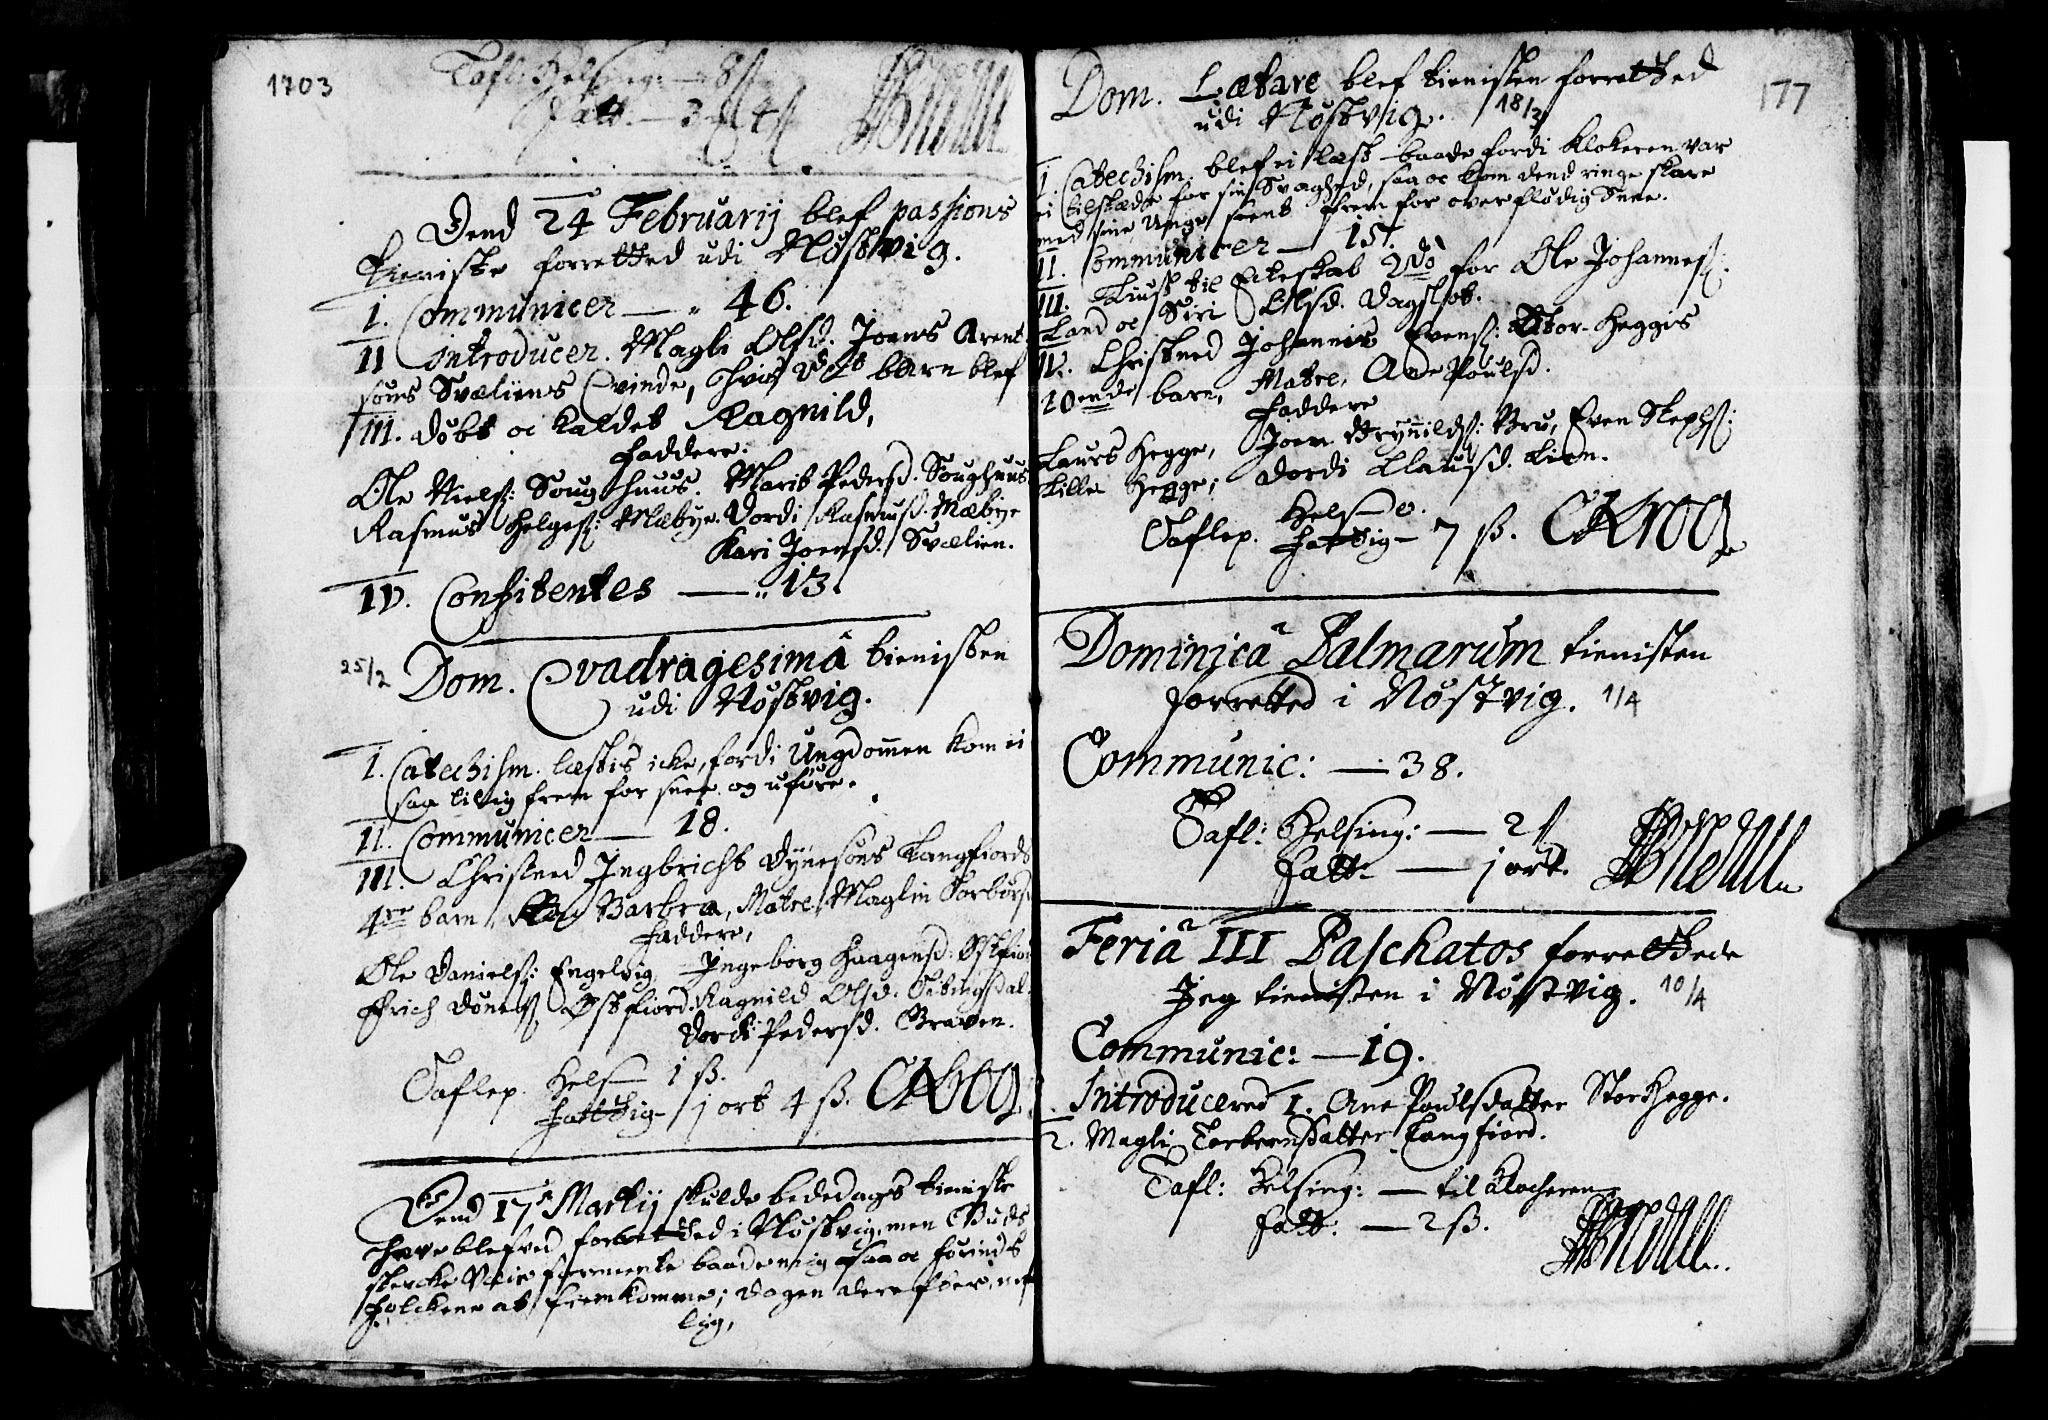 1703
Tafl: Helsing: — 8 ß
Fatt. — 3 ß 4 ß
Dend 24 Februarij blef passions
tieniste forretted udi Nøstvig.
I. Communicer — " 46.
II Introducer. Magli Olsd. Joens Arent
søns Svæliens Qvinde, hvis barn blef
III. døbt oc kaldet Ragnild,
Faddere.
Ole Niels: Soughuus. Marit Pedersd. Soughuus
Rasmus Helges: Mæbye. Dordi Rasmusd. Mæbye
Kari Joensd. Svælien.
IV. Confitentes — " 13.
25/2 Dom. Qvadragesimâ tienisten
udi Nøstvig.
I. Catechism. læstis icke, fordi Ungdommen kom ei
saa tilig frem for snee og uføre.
II. Communicer — 18.
III. Christned Ingbricht Dynesøns Langfiords
4de barn Barbra, Matre Maglin Torbørs
Faddere,
Ole Daniels: Engelvig Ingeborg Haagensd: Østfior
Erich Døness Østfiord. Ragnild Olsd.
Dordi Pedersd. Graven.
Taflep. Hels — 1 ß.
Fattig — 1 ort 4 ß. CKrog
Dend 17 Martij skulde bededags tieniste
have blefved forretted i Nøstvig, men Guds
stercke Veir formente baade mig saa oc
folckene at fremkomme; dagen dereføer, nef
lig,
177
Dom. Lætare blef tienisten forretted
udi Nøstvig. 18/3
I. Catechism. blef ei læst baade fordi Klokeren var
ei tilstæde for sin Svaghed, saa oc kom dend ringe skare
med sine Unge seent frem for overflødig Snee.
II. Communicer — 15.
III. Liust til Ecteskab 2do for Ole Johannes:
Land oc Siri Olsd. Dagslot.
IV. Christned Johannis Evens: Stor-Heggis
10ende barn, Matre, Ane Poulsd.
Faddere
Laurs Hegge, Joen Brynnilds: Bru, Even Stephs:
Lille Hegge; Dordi Clausd. Lien.
Taflep. Hels — 0.
Fattig — 7 ß. CKrog
Dominicâ Palmarum tienisten
forretted i Nøstvig. 1/4
Communic: — 38.
Tafl: Helsing: — 2 ß
Fatt: — 1 ort.
Feriâ III Paschatos forrettede
Jeg tienisten i Nøstvig. 10/4
Communic: — 19.
Introducered 1. Ane Poulsdatter StorHegge.
2. Magli Torbernsdatter Langfiord.
Tafl: Helsing: — til Klocheren
Fatt: — 2 ß.